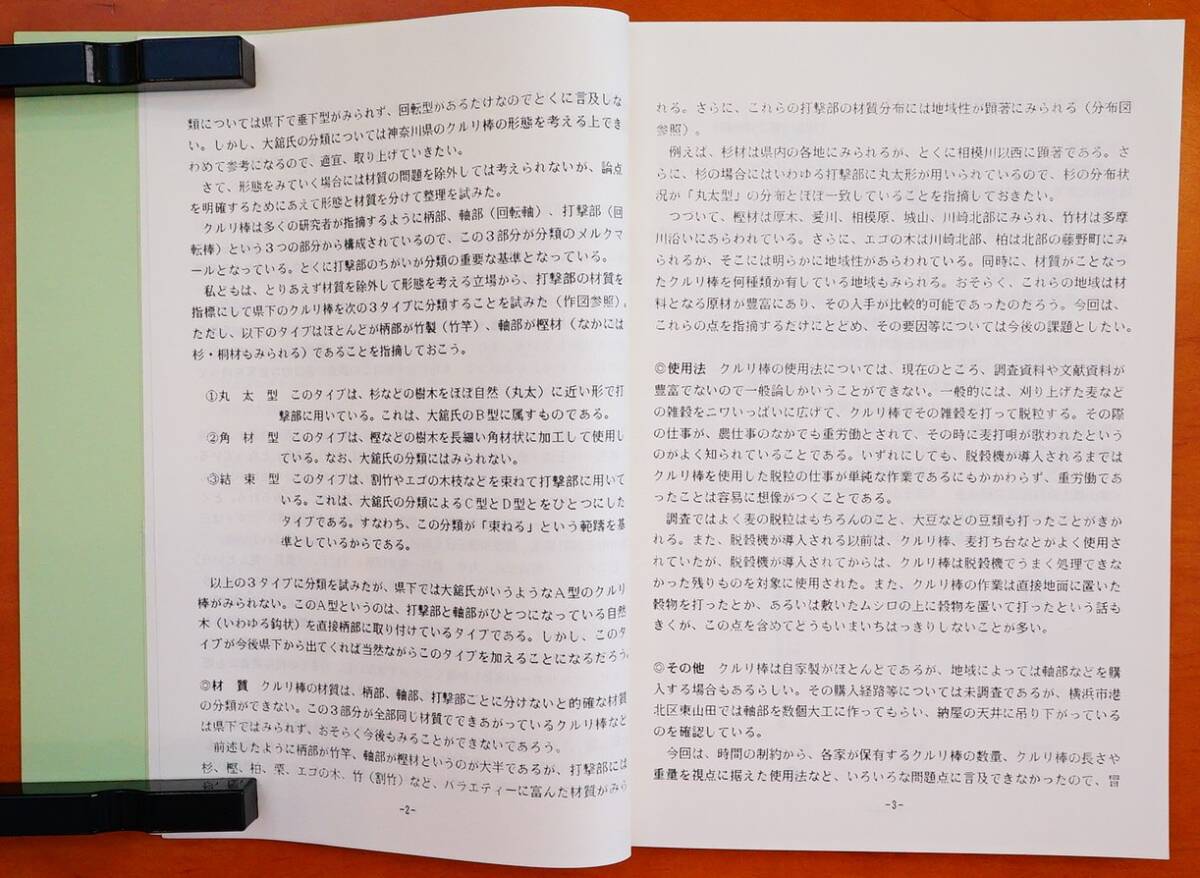 類については県下で垂下型がみられず、回転型があるだけなのでとくに言及しな
い。しかし、大舘氏の分類については神奈川県のクルリ棒の形態を考える上でき
わめて参考になるので、適宜、取り上げていきたい。
さて、形態をみていく場合には材質の問題を除外しては考えられないが、論点
を明確するためにあえて形態と材質を分けて整理を試みた。
クルリ棒は多くの研究者が指摘するように柄部、軸部（回転軸）、打撃部（回
転棒）という３つの部分から構成されているので、この３部分が分類のメルクマ
ールとなっている。とくに打撃部のちがいが分類の重要な基準となっている。
私どもは、とりあえず材質を除外して形態を考える立場から、打撃部の材質を
指標にして県下のクルリ棒を次の３タイプに分類することを試みた（作図参照）。
ただし、以下のタイプはほとんどが柄部が竹製（竹竿）、軸部が樫材（なかには
杉・桐材もみられる）であることを指摘しておこう。
①丸太型　このタイプは、杉などの樹木をほぼ自然（丸太）に近い形で打
撃部に用いている。これは、大舘氏のＢ型に属すものである。
②角材型　このタイプは、樫などの樹木を長細い角材状に加工して使用し
ている。なお、大舘氏の分類にはみられない。
③結束型　このタイプは、割竹やエゴの木枝などを束ねて打撃部に用いて
いる。これは、大舘氏の分類によるＣ型とＤ型とをひとつにした
タイプである。すなわち、この分類が「束ねる」という範疇を基
準としているからである。
以上の３タイプに分類を試みたが、県下では大舘氏がいうようなＡ型のクルリ
棒がみられない。このＡ型というのは、打撃部と軸部がひとつになっている自然
木（いわゆる鈎状）を直接柄部に取り付けているタイプである。しかし、このタ
イプが今後県下から出てくれば当然ながらこのタイプを加えることになるだろう。
◎材　質　クルリ棒の材質は、柄部、軸部、打撃部ごとに分けないと的確な材質
の分類ができない。この３部分が全部同じ材質でできあがっているクルリ棒など
は県下ではみられず、おそらく今後もみることができないであろう。
前述したように柄部が竹竿、軸部が樫材というのが大半であるが、打撃部には
杉、樫、柏、栗、エゴの木、竹（割竹）など、バラエティーに富んだ材質がみら
-2-
れる。さらに、これらの打撃部の材質分布には地域性が顕著にみられる（分布図
参照）。
例えば、杉材は県内の各地にみられるが、とくに相模川以西に顕著である。さ
らに、杉の場合にはいわゆる打撃部に丸太形が用いられているので、杉の分布状
況が「丸太型」の分布とほぼ一致していることを指摘しておきたい。
つづいて、樫材は厚木、愛川、相模原、城山、川崎北部にみられ、竹材は多摩
川沿いにあらわれている。さらに、エゴの木は川崎北部、柏は北部の藤野町にみ
られるが、そこには明らかに地域性があらわれている。同時に、材質がことなっ
たクルリ棒を何種類か有している地域もみられる。おそらく、これらの地域は材
料となる原材が豊富にあり、その入手が比較的可能であったのだろう。今回は、
これらの点を指摘するだけにとどめ、その要因等については今後の課題としたい。
◎使用法　クルリ棒の使用法については、現在のところ、調査資料や文献資料が
豊富でないので一般論しかいうことができない。一般的には、刈り上げた麦など
の雑穀をニワいっぱいに広げて、クルリ棒でその雑穀を打って脱粒する。その際
の仕事が、農仕事のなかでも重労働とされて、その時に麦打唄が歌われたという
のがよく知られていることである。いずれにしても、脱穀機が導入されるまでは
クルリ棒を使用した脱粒の仕事が単純な作業であるにもかかわらず、重労働であ
ったことは容易に想像がつくことである。
調査ではよく麦の脱粒はもちろんのこと、大豆などの豆類も打ったことがきか
れる。また、脱穀機が導入される以前は、クルリ棒、麦打ち台などがよく使用さ
れていたが、脱穀機が導入されてからは、クルリ棒は脱穀機でうまく処理できな
かった残りものを対象に使用された。また、クルリ棒の作業は直接地面に置いた
穀物を打ったとか、あるいは敷いたムシロの上に穀物を置いて打ったという話も
きくが、この点を含めてどうもいまいちはっきりしないことが多い。
◎その他　クルリ棒は自家製がほとんどであるが、地域によっては軸部などを購
入する場合もあるらしい。その購入経路等については未調査であるが、横浜市港
北区東山田では軸部を数個大工に作ってもらい、納屋の天井に吊り下がっている
のを確認している。
今回は、時間の制約から、各家が保有するクルリ棒の数量、クルリ棒の長さや
重量を視点に据えた使用法など、いろいろな問題点に言及できなかったので、冒
-3-